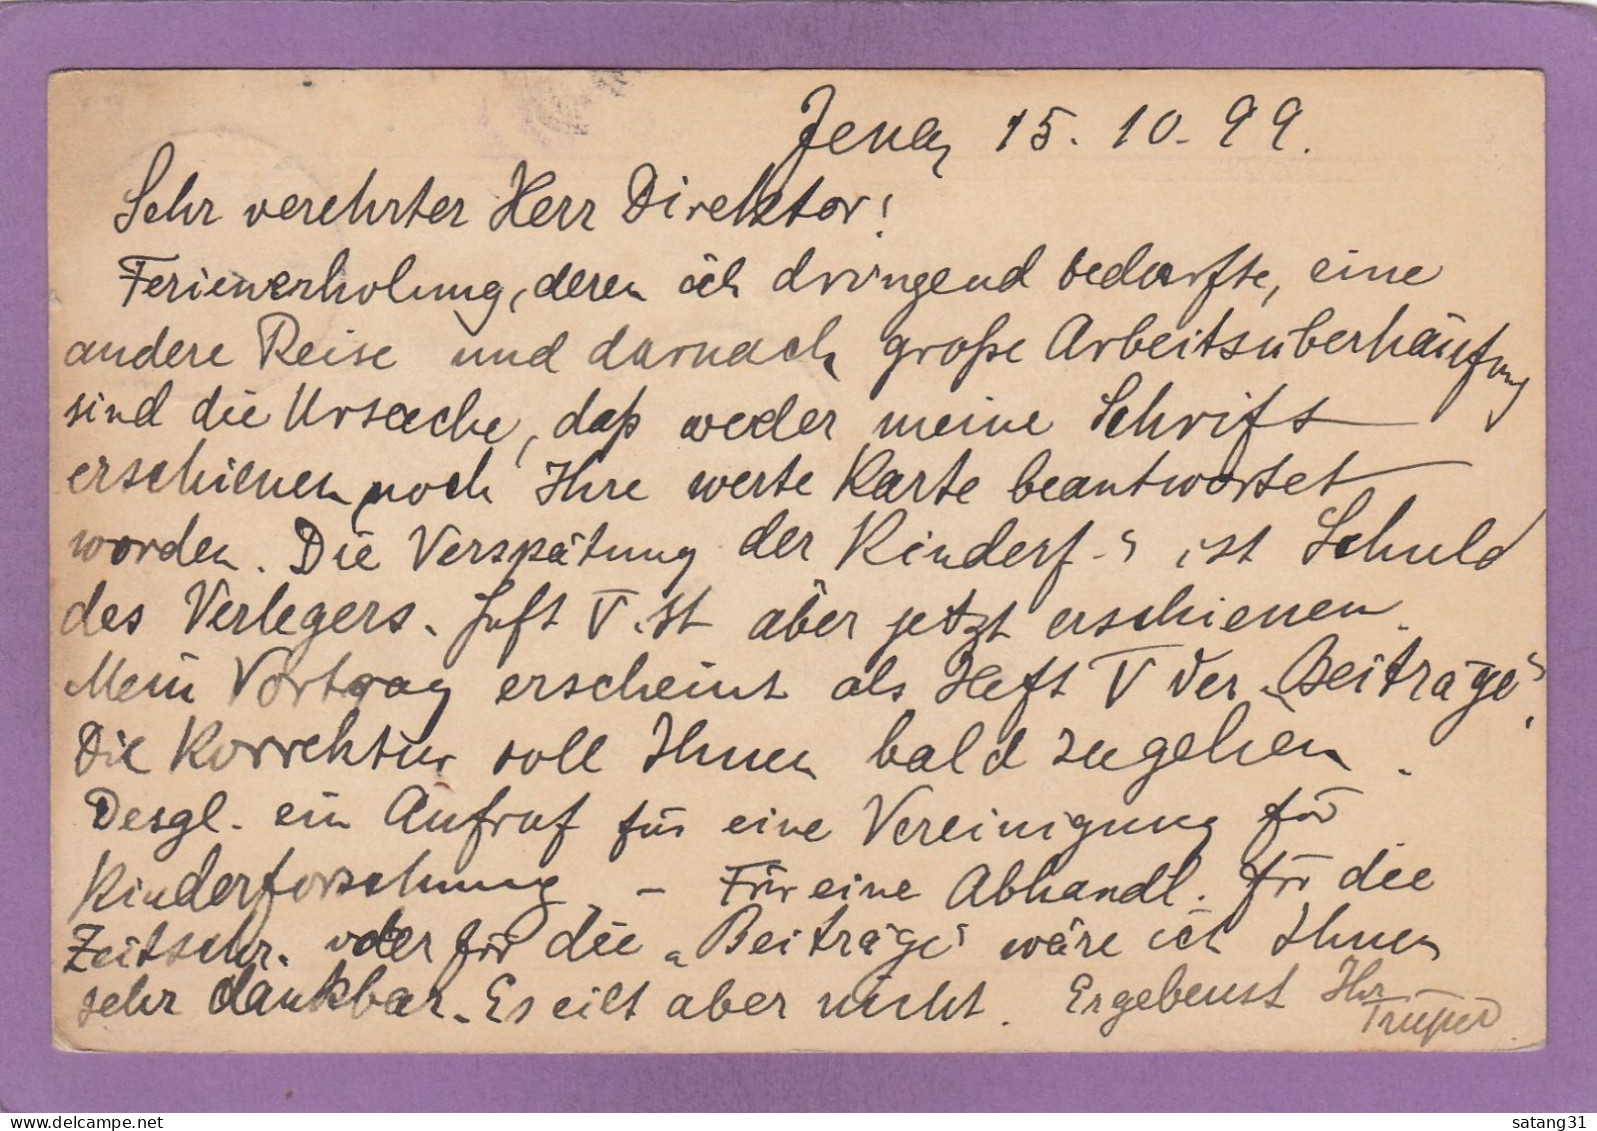 Jena, 15. 10. 99.
Sehr verehrter Herr Direktor!
Ferienerholung, deren ich dringend bedurfte, eine
andere Reise und darnach große Arbeitsüberhäufung
sind die Ursache, daß weder meine Schrift
erschienen noch Ihre werte Karte beantwortet
worden. Die Verspätung der Kinderf-s ist Schuld
des Verlegers. Heft V ist aber jetzt erschienen.
Mein Vortrag erscheint als Heft V der „Beiträge“.
Die Korrektur soll Ihnen bald zugehen.
Desgl. ein Aufruf für eine Vereinigung für
Kinderforschung. – Für eine Abhandl. für die
Zeitschr. oder für die „Beiträge“ wäre ich Ihnen
sehr dankbar. Es eilt aber nicht. Ergebenst Ihr
Trüper
satang31